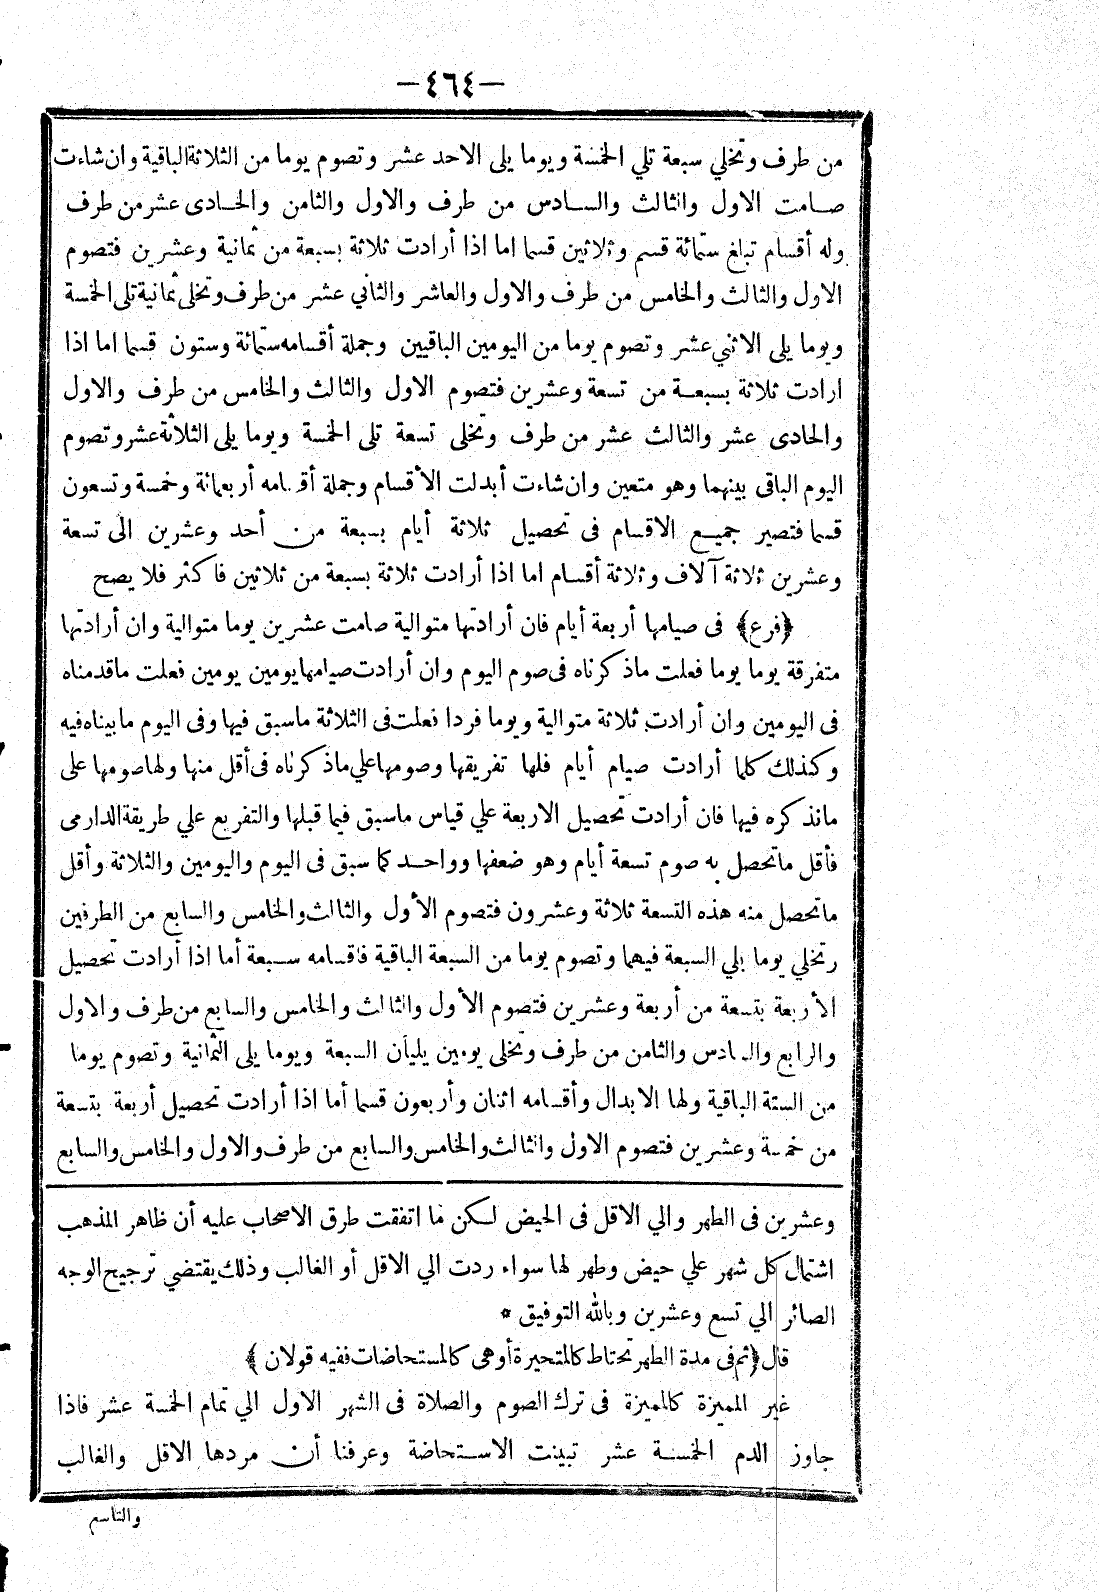 —٤٦٤—
من طرف وتخلي سبعة تلي الخمسة ويوما يلى الاحد عشر وتصوم يوما من الثلاثة الباقية وان شاءت
صامت الاول والثالث والسادس من طرف والاول والثامن والحادى عشر من طرف
وله أقسام تبلغ ستمائة قسم وثلاثين قسما اما اذا أرادت ثلاثة بسبعة من ثمانية وعشرين فتصوم
الاول والثالث والخامس من طرف والاول والعاشر والثاني عشر من طرف وتخلى ثمانية تلى الخمسة
ويوما يلى الاثني عشر وتصوم يوما من اليومين الباقيين وجملة أقسامه ستمائة وستون قسما اما اذا
ارادت ثلاثة بسبعة من تسعة وعشرين فتصوم الاول والثالث والخامس من طرف والاول
والحادى عشر والثالث عشر من طرف وتخلى تسعة تلى الخمسة ويوما يلى الثلاثة عشر وتصوم
اليوم الباقى بينهما وهو متعين وان شاءت أبدلت الأقسام وجملة أقسامه أربعمائة وخمسة وتسعون
قسما فتصير جميع الاقسام فى تحصيل ثلاثة أيام بسبعة من أحد وعشرين الى تسعة
وعشرين ثلاثة آلاف وثلاثة أقسام اما اذا أرادت ثلاثة بسبعة من ثلاثين فاكثر فلا يصح
﴿فرع﴾ فى صيامها أربعة أيام فان أرادتها متوالية صامت عشرين يوما متوالية وان أرادتها
متفرقة يوما يوما فعلت ماذكرناه فى صوم اليوم وان أرادت صيامها يومين يومين فعلت ماقدمناه
فى اليومين وان أرادت ثلاثة متوالية ويوما فردا فعلت فى الثلاثة ماسبق فيها وفى اليوم مابيناه فيه
وكذلك كلما أرادت صيام أيام فلها تفريقها وصومها علي ماذكرناه فى أقل منها ولها صومها على
مانذكره فيها فان أرادت تحصيل الاربعة علي قياس ماسبق فيما قبلها والتفريع علي طريقة الدارمى
فأقل ماتحصل به صوم تسعة أيام وهو ضعفها وواحد كما سبق فى اليوم واليومين والثلاثة وأقل
ماتحصل منه هذه التسعة ثلاثة وعشرون فتصوم الأول والثالث والخامس والسابع من الطرفين
وتخلي يوما يلي السبعة فيهما وتصوم يوما من السبعة الباقية فاقسامه سبعة أما اذا أرادت تحصيل
الأربعة بتسعة من أربعة وعشرين فتصوم الأول والثالث والخامس والسابع من طرف والاول
والرابع والسادس والثامن من طرف وتخلى يومين يليان السبعة ويوما يلى الثمانية وتصوم يوما
من الستة الباقية ولها الابدال وأقسامه اثنان وأربعون قسما أما اذا أرادت تحصيل أربعة بتسعة
من خمسة وعشرين فتصوم الاول والثالث والخامس والسابع من طرف والاول والخامس والسابع
وعشرين فى الطهر والي الاقل فى الحيض لكن ما اتفقت طرق الاصحاب عليه أن ظاهر المذهب
اشتمال كل شهر علي حيض وطهر لها سواء ردت الي الاقل أو الغالب وذلك يقتضي ترجيح الوجه
الصائر الي تسع وعشرين وبالله التوفيق *
قال ﴿ثم فى مدة الطهر تحتاط كالمتحيرة أو هى كالمستحاضات ففيه قولان﴾
غير المميزة كالمميزة فى ترك الصوم والصلاة فى الشهر الاول الي تمام الخمسة عشر فاذا
جاوز الدم الخمسة عشر تبينت الاستحاضة وعرفنا أن مردها الاقل والغالب
والتاسع